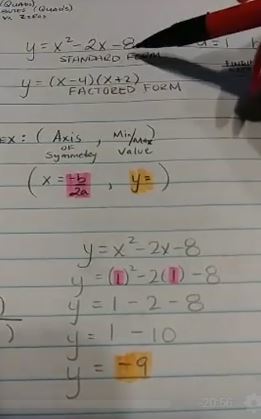 (QUADS)
(QUADS)
VS ZEROS
y = x² - 2x - 8
= 1
STANDARD FORM
y = (x-4)(x+2)
FACTORED FORM
EX: ( Axis of Symmetry , Min/Max Value )
( x = -b/2a , y = )
y = x² - 2x - 8
y = (1)² - 2(1) - 8
y = 1 - 2 - 8
y = 1 - 10
y = -9
-20:56